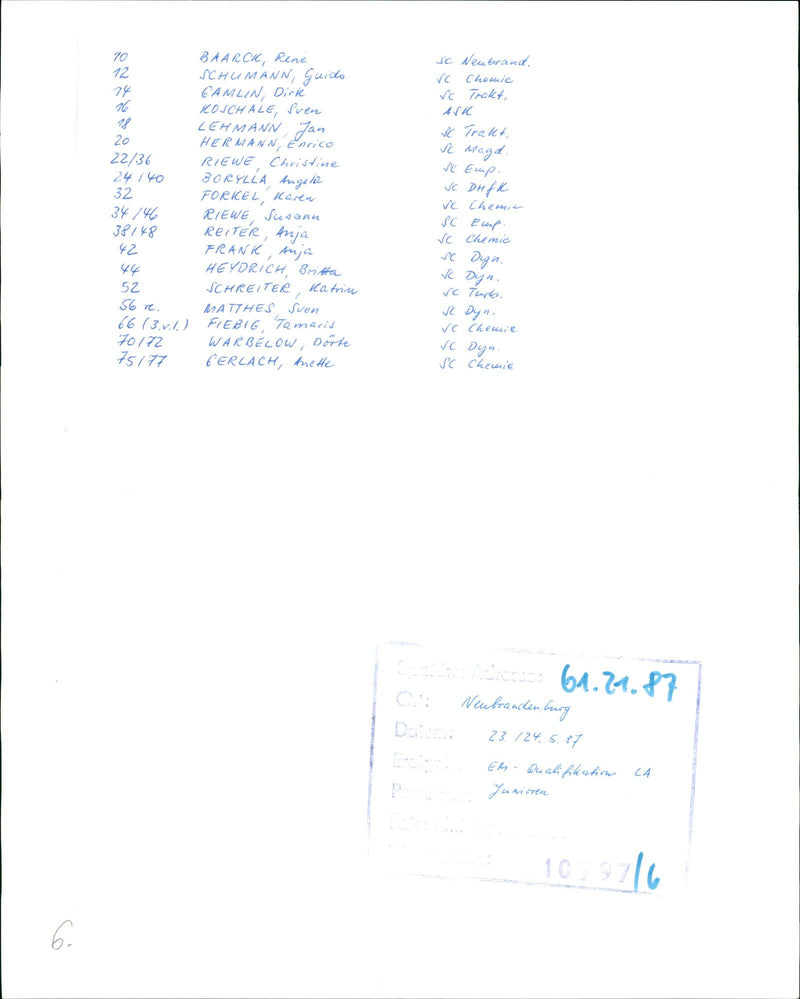 10 BAARCK, René SC Neubrand.
12 SCHUMANN, Guido SC Chemie
14 GAMLIN, Dirk SC Trakt.
16 KOSCHALE, Sven ASK
18 LEHMANN, Jan SC Trakt.
20 HERMANN, Enrico SC Magd.
22/36 RIEWE, Christine SC Emp.
24/40 BORYLLA, Angela SC DHfK
32 FORKEL, Karen SC Chemie
34/46 RIEWE, Susann SC Emp.
38/48 REITER, Anja SC Chemie
42 FRANK, Anja SC Dyn.
44 HEYDRICH, Britta SC Dyn.
52 SCHREITER, Katrin SC Turb.
56 re. MATTHES, Sven SC Dyn.
66 (3.v.l.) FIEBIG, Tamaris SC Chemie
70/72 WARBELOW, Dörte SC Dyn.
75/77 GERLACH, Anette SC Chemie
Speicher-Adresse: 61.21.87
Ort: Neubrandenburg
Datum: 23./24.5.87
Ereignis: EM-Qualifikation LA
Junioren
10797/6
6.